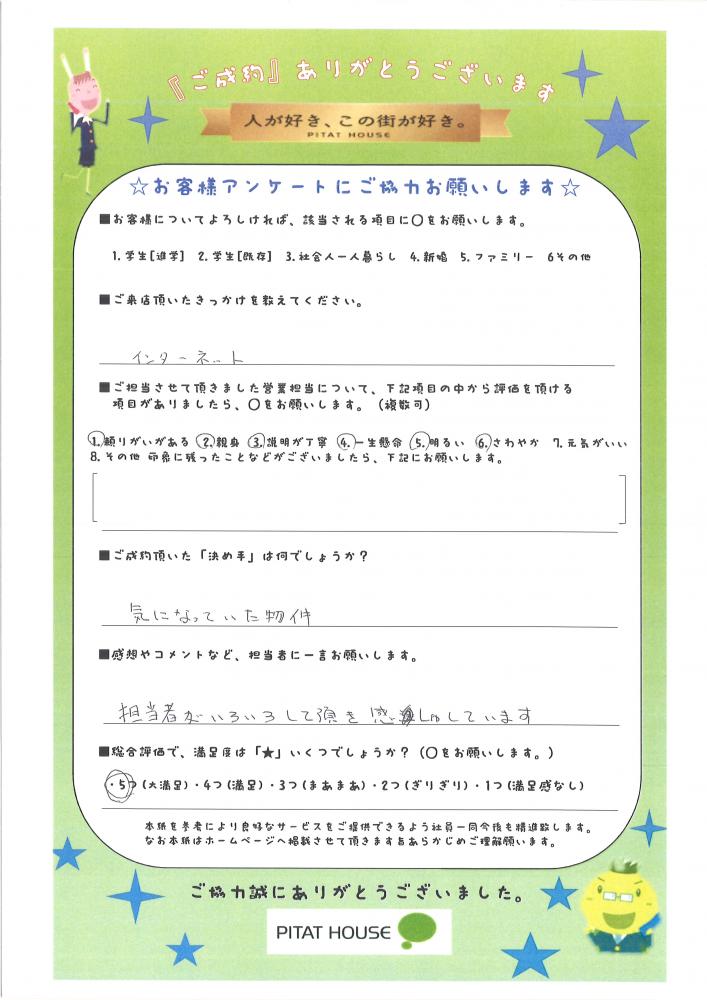 『ご成約』ありがとうございます
人が好き、この街が好き。
PITAT HOUSE
☆お客様アンケートにご協力お願いします☆
■お客様についてよろしければ、該当される項目に〇をお願いします。
1.学生[進学] 2.学生[既存] 3.社会人一人暮らし 4.新婚 5.ファミリー 6その他
■ご来店頂いたきっかけを教えてください。
インターネット
■ご担当させて頂きました営業担当について、下記項目の中から評価を頂ける
項目がありましたら、〇をお願いします。(複数可)
1.頼りがいがある 2.親身 3.説明が丁寧 4.一生懸命 5.明るい 6.さわやか 7.元気がいい
8.その他 印象に残ったことなどがございましたら、下記にお願いします。
■ご成約頂いた「決め手」は何でしょうか?
気になっていた物件
■感想やコメントなど、担当者に一言お願いします。
担当者がいろいろして頂き 感しゃしています
■総合評価で、満足度は「★」いくつでしょうか?(〇をお願いします。)
・5つ(大満足)・4つ(満足)・3つ(まあまあ)・2つ(ぎりぎり)・1つ(満足感なし)
本紙を参考により良好なサービスをご提供できるよう社員一同今後も精進致します。
なお本紙はホームページへ掲載させて頂きます旨あらかじめご理解願います。
ご協力誠にありがとうございました。
PITAT HOUSE